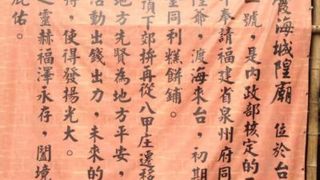 霞海城隍廟 位於台
號,是內政部核定的
年奉請福建省泉州府同
隍爺,渡海來台,初期
同利糕餅鋪。
頂下郊拚再從八甲庄遷移
地方先賢為地方平安,
活動出錢出力,未來的
持,使得發揚光大。
之靈赫福澤永存,闔境
庇佑。